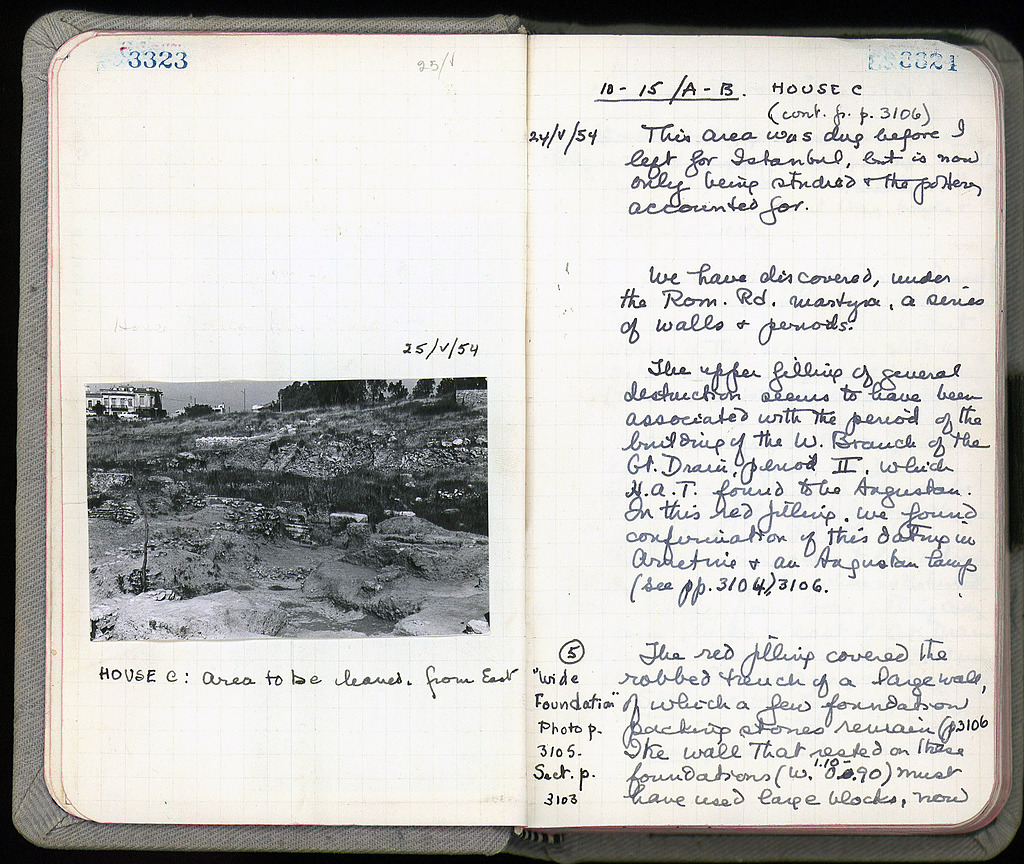 3323
25/V
25/V/54
HOUSE C: area to be cleaned. from East
3324
10-15/A-B. HOUSE C
(cont. fr. p. 3106)
24/V/54
This area was dug before I
left for Istanbul, but is now
only being studied + the pottery
accounted for.
We have discovered, under
the Rom. Rd. martyra, a series
of walls + periods.
The upper filling of general
destruction seems to have been
associated with the period of the
building of the W. Branch of the
Gt. Drain, period II, which
H.A.T. found to be Augustan.
In this red filling, we found
confirmation of this dating in
Arretine + an Augustan lamp
(see pp. 3104, 3106.
5
"Wide
Foundation"
Photo p.
3105.
Sect. p.
3103
The red filling covered the
robbed trench of a large wall,
of which a few foundation
packing stones remain (p.3106
The wall that rested on these
foundations (W. 1.10- 0.90) must
have used large blocks, now